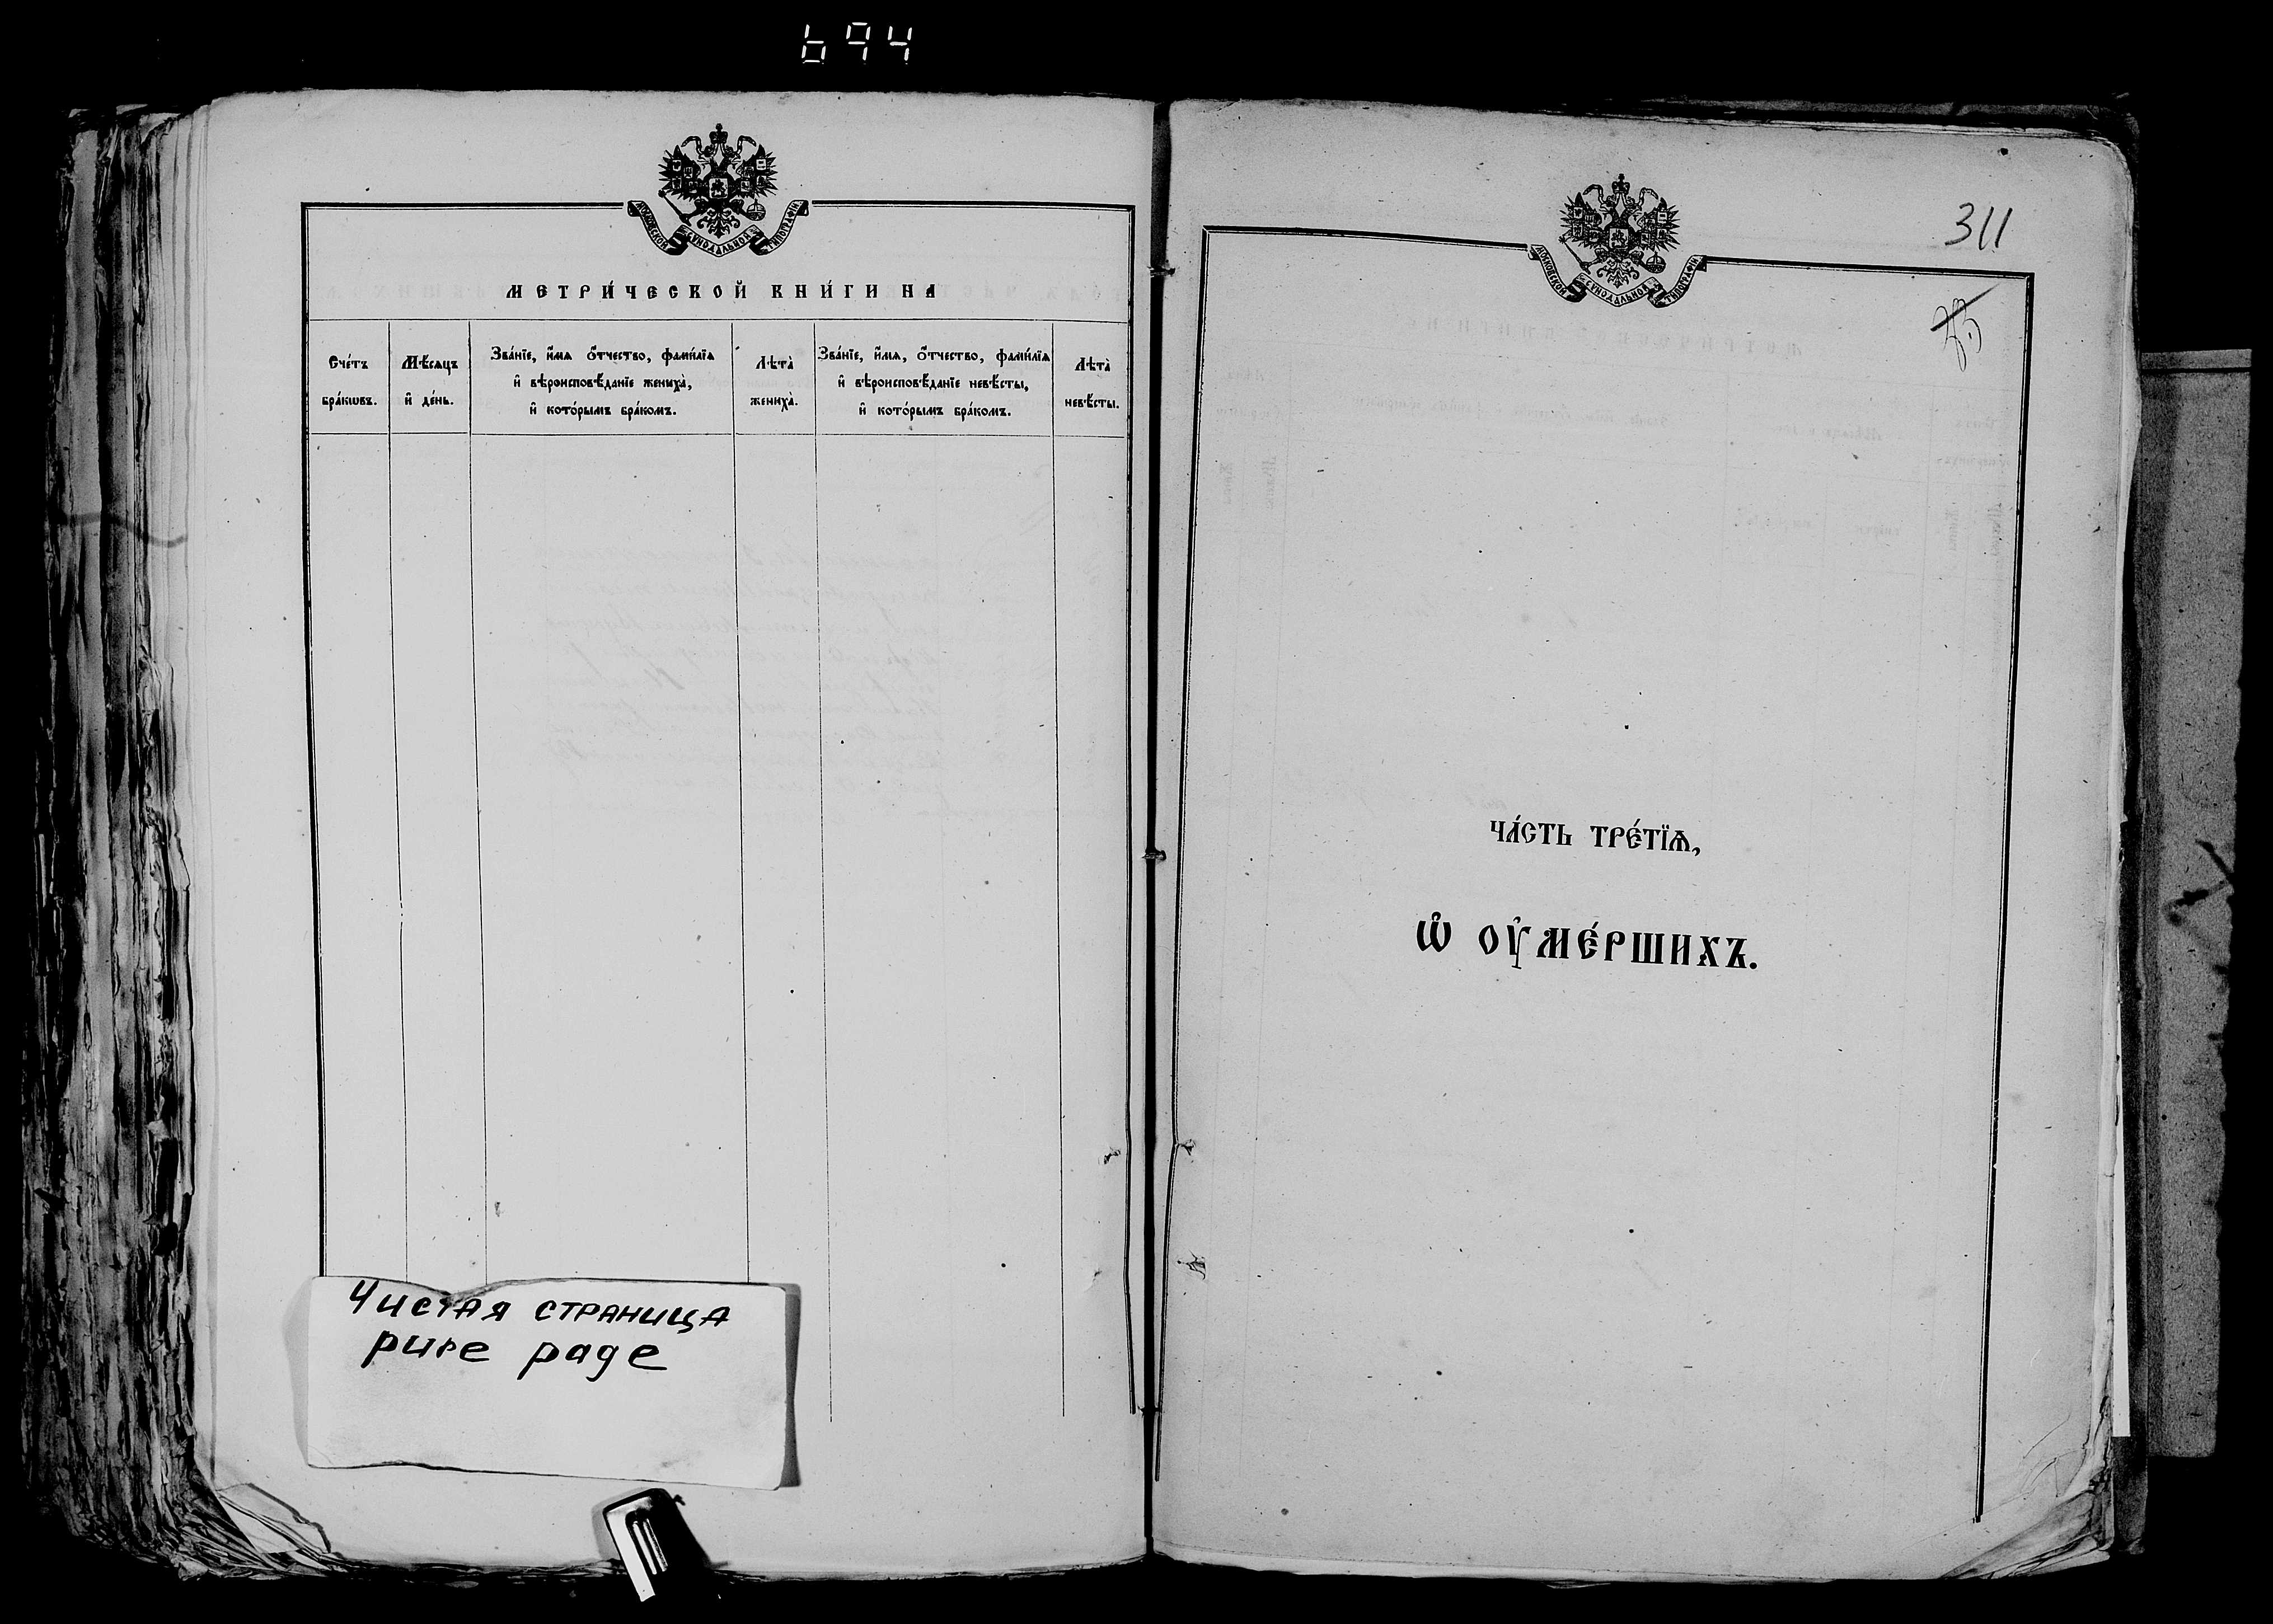 694
МОСКОВСКОЙ СѴНОДАЛЬНОЙ ТИПОГРАФІИ
МЕТРИ́ЧЕСКОЙ КНИ́ГИ НА
Сче́тъ бра́кѡвъ.
Мѣ́сяцъ и҆ де́нь.
Зва́нїе, и҆́мѧ ѻ҆́тчество, фами́лїѧ
и҆ вѣроисповѣ́данїе жениха̀,
и҆ кото́рымъ бра́комъ.
Лѣ́та̀ жениха̀.
Зва́нїе, и҆́мѧ, ѻ҆́тчество, фами́лїѧ
и҆ вѣроисповѣ́данїе невѣ́сты,
и҆ кото́рымъ бра́комъ.
Лѣ́та̀ невѣ́сты.
Чистая страница
pure page
311
МОСКОВСКОЙ СѴНОДАЛЬНОЙ ТИПОГРАФІИ
ЧА́СТЬ ТРЕ́ТЇѦ,
Ѡ҆ ОУ҆МЕ́РШИХЪ.